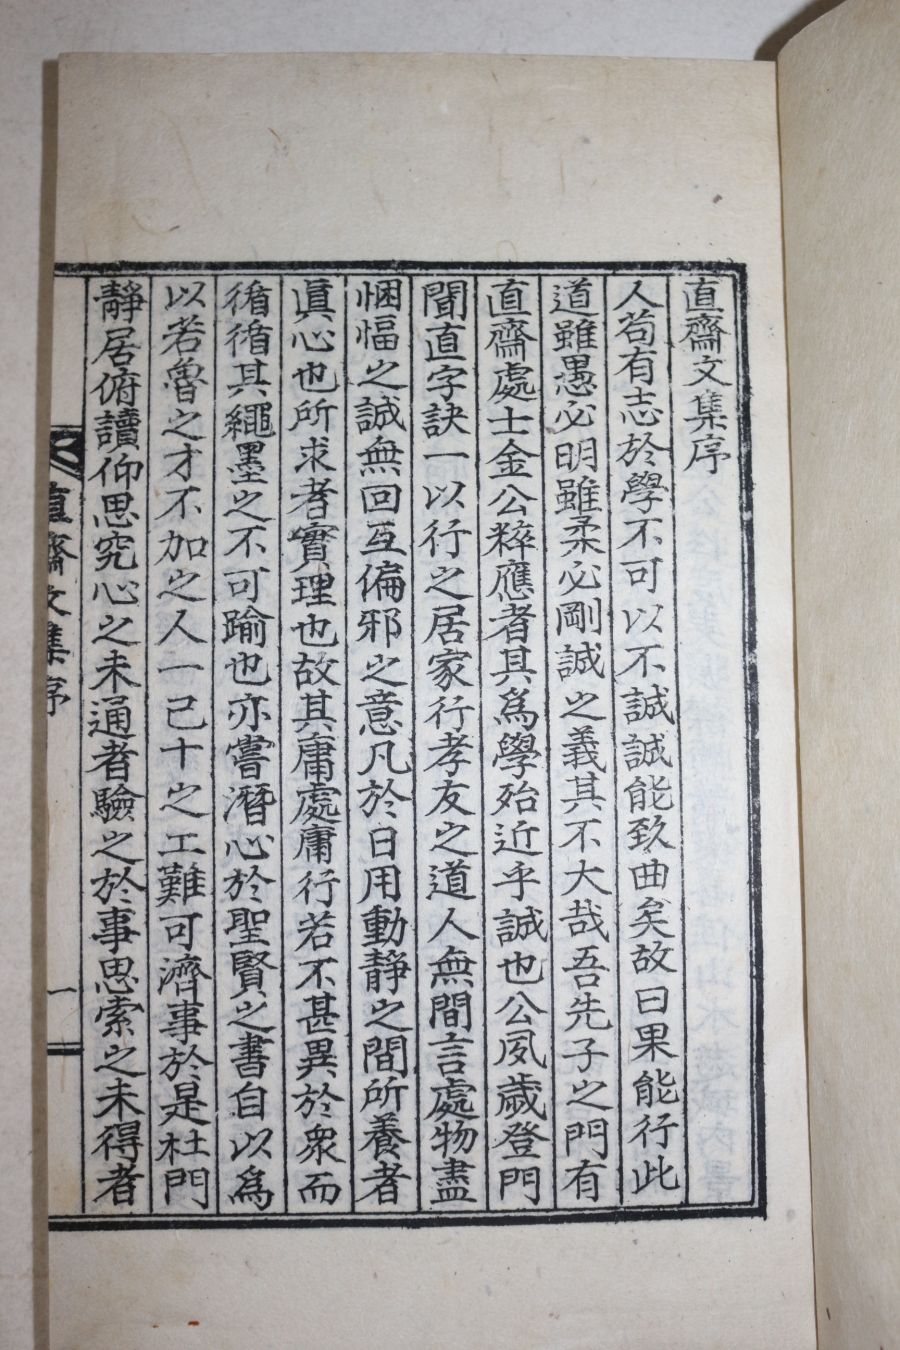 直齋文集序
人苟有志於學不可以不誠誠能致曲矣故曰果能行此
道雖愚必明雖柔必剛誠之義其不大哉吾先子之門有
直齋處士金公粹應者其爲學殆近乎誠也公夙歲登門
聞直字訣一以行之居家行孝友之道人無間言處物盡
悃愊之誠無回互偏邪之意凡於日用動靜之間所養者
眞心也所求者實理也故其庸處庸行若不甚異於衆而
循循其繩墨之不可踰也亦嘗潛心於聖賢之書自以爲
以若魯之才不加之人一己十之工難可濟事於是杜門
靜居俯讀仰思究心之未通者驗之於事思索之未得者
直齋文集序
一